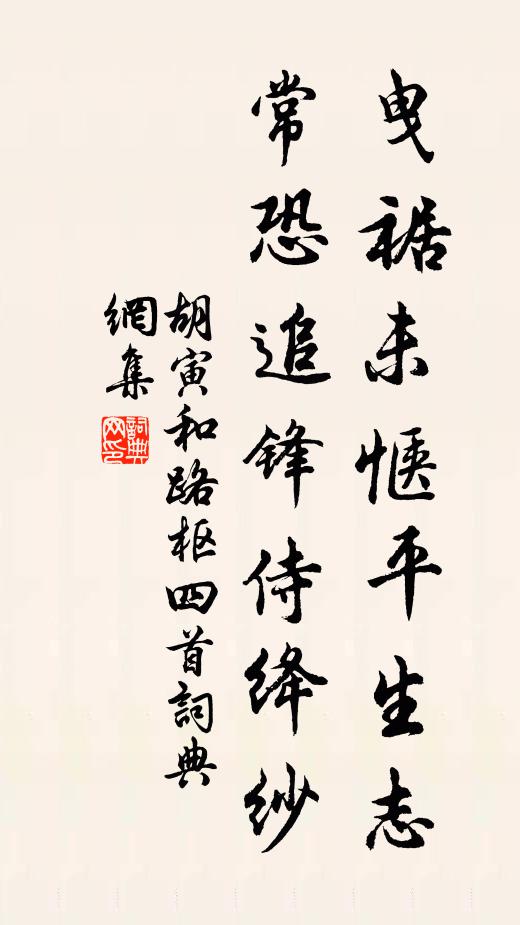 曳裾未惬平生志
常恐追锋侍绛纱
胡寅和路枢四首詞典
網集
詞典网印